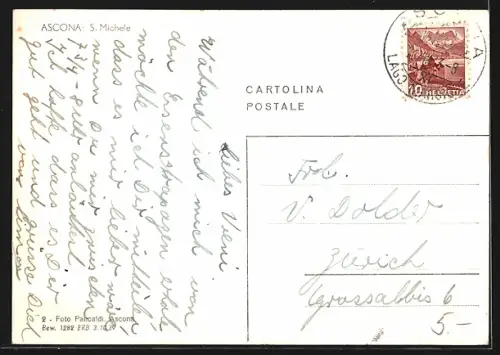 ASCONA: S. Michele
Liebes Vreni
Während ich mich von
den Eisenstrapazen erhole
möchte ich Dir mitteilen
dass es mir lieber wäre,
wenn Du mir zwischen
7 & 7½ anläutest.
Ich hoffe dass es Dir
gut geht und grüsse Dich
von
2 - Foto Pancaldi, Ascona
Bew. 1282 BRB 3.10.39
CARTOLINA
POSTALE
ASCONA
LAGO MAGGIORE
10 HELVETIA
Frl.
V. Dolder
Zürich
Grossalbis 6
5.-